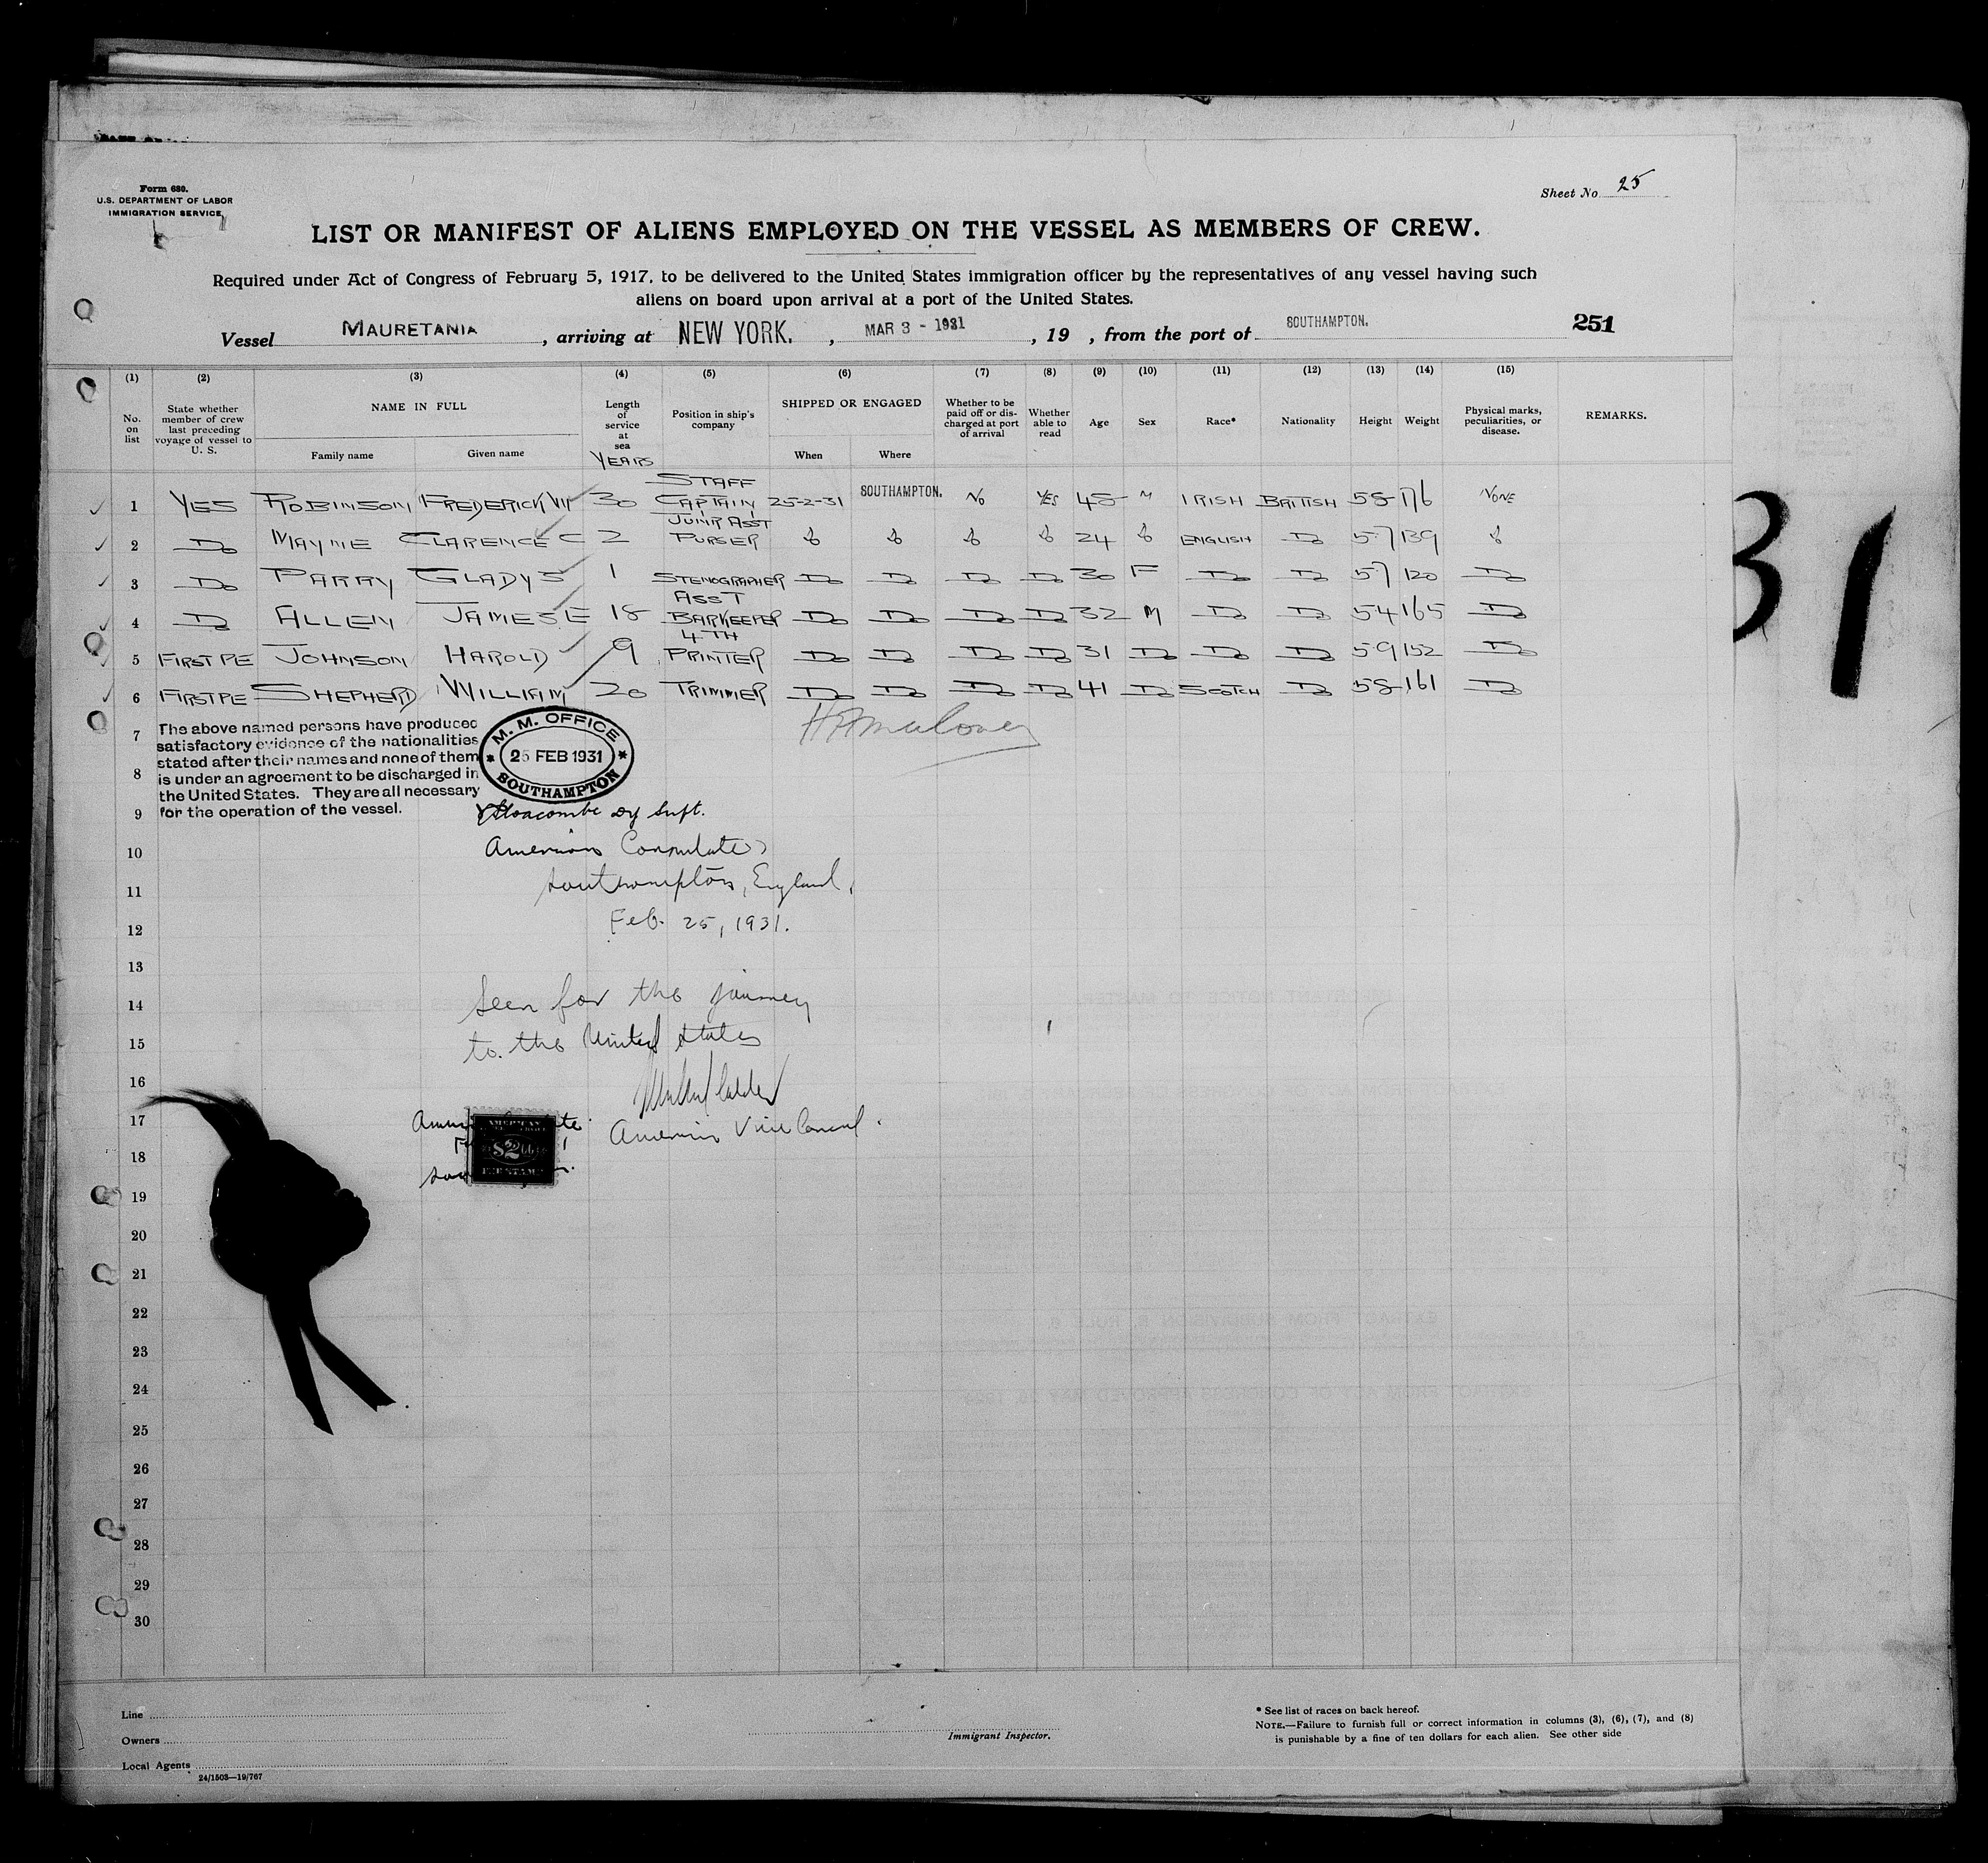 Form 680.
U.S. DEPARTMENT OF LABOR
IMMIGRATION SERVICE
Sheet No. 25
LIST OR MANIFEST OF ALIENS EMPLOYED ON THE VESSEL AS MEMBERS OF CREW.
Required under Act of Congress of February 5, 1917, to be delivered to the United States immigration officer by the representatives of any vessel having such
aliens on board upon arrival at a port of the United States.
Vessel MAURETANIA, arriving at NEW YORK., MAR 3 - 1931, 19 , from the port of SOUTHAMPTON. 251
(1) (2) (3) (4) (5) (6) (7) (8) (9) (10) (11) (12) (13) (14) (15)
No. on list
State whether member of crew last preceding voyage of vessel to U. S.
NAME IN FULL
Family name
Given name
Length of service at sea
YEARS
Position in ship's company
SHIPPED OR ENGAGED
When
Where
Whether to be paid off or discharged at port of arrival
Whether able to read
Age
Sex
Race*
Nationality
Height
Weight
Physical marks, peculiarities, or disease.
REMARKS.
1 YES ROBINSON FREDERICK 30 STAFF CAPTAIN 25-2-31 SOUTHAMPTON. NO YES 48 M IRISH BRITISH 58 176 NONE
2 Do MAYNE CLARENCE C 2 JUNR ASST PURSER Do Do Do Do 24 Do ENGLISH Do 57 139 Do
3 Do PARRY GLADYS 1 STENOGRAPHER Do Do Do Do 30 F Do Do 57 120 Do
4 Do ALLEN JAMES E 18 ASST BARKEEPER Do Do Do Do 32 M Do Do 54 165 Do
5 FIRST PE JOHNSON HAROLD 9 4TH PRINTER Do Do Do Do 31 Do Do Do 59 152 Do
6 FIRST PE SHEPHERD WILLIAM 20 TRIMMER Do Do Do Do 41 Do SCOTCH Do 58 161 Do
7
8
9
The above named persons have produced
satisfactory evidence of the nationalities
stated after their names and none of them
is under an agreement to be discharged in
the United States. They are all necessary
for the operation of the vessel.
M. M. OFFICE
25 FEB 1931
SOUTHAMPTON
Dy Supt.
10 American Consulate
11 Southampton, England,
12 Feb. 25, 1931.
13
14 Seen for the journey
15 to the United States
16
17 American Vice Consul.
AMERICAN
$2
FEE STAMP
18
19
20
21
22
23
24
25
26
27
28
29
30
31
Line
Owners
Local Agents
24/1503—19/767
Immigrant Inspector.
* See list of races on back hereof.
NOTE.—Failure to furnish full or correct information in columns (3), (6), (7), and (8)
is punishable by a fine of ten dollars for each alien. See other side